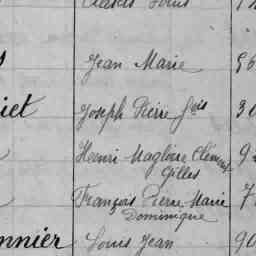 Louis
Jean Marie 56
iet Joseph Pierre fois 30
Henri Magloire Clément
Gilles
François Pierre Marie 7
Dominique
nnier Louis Jean 90